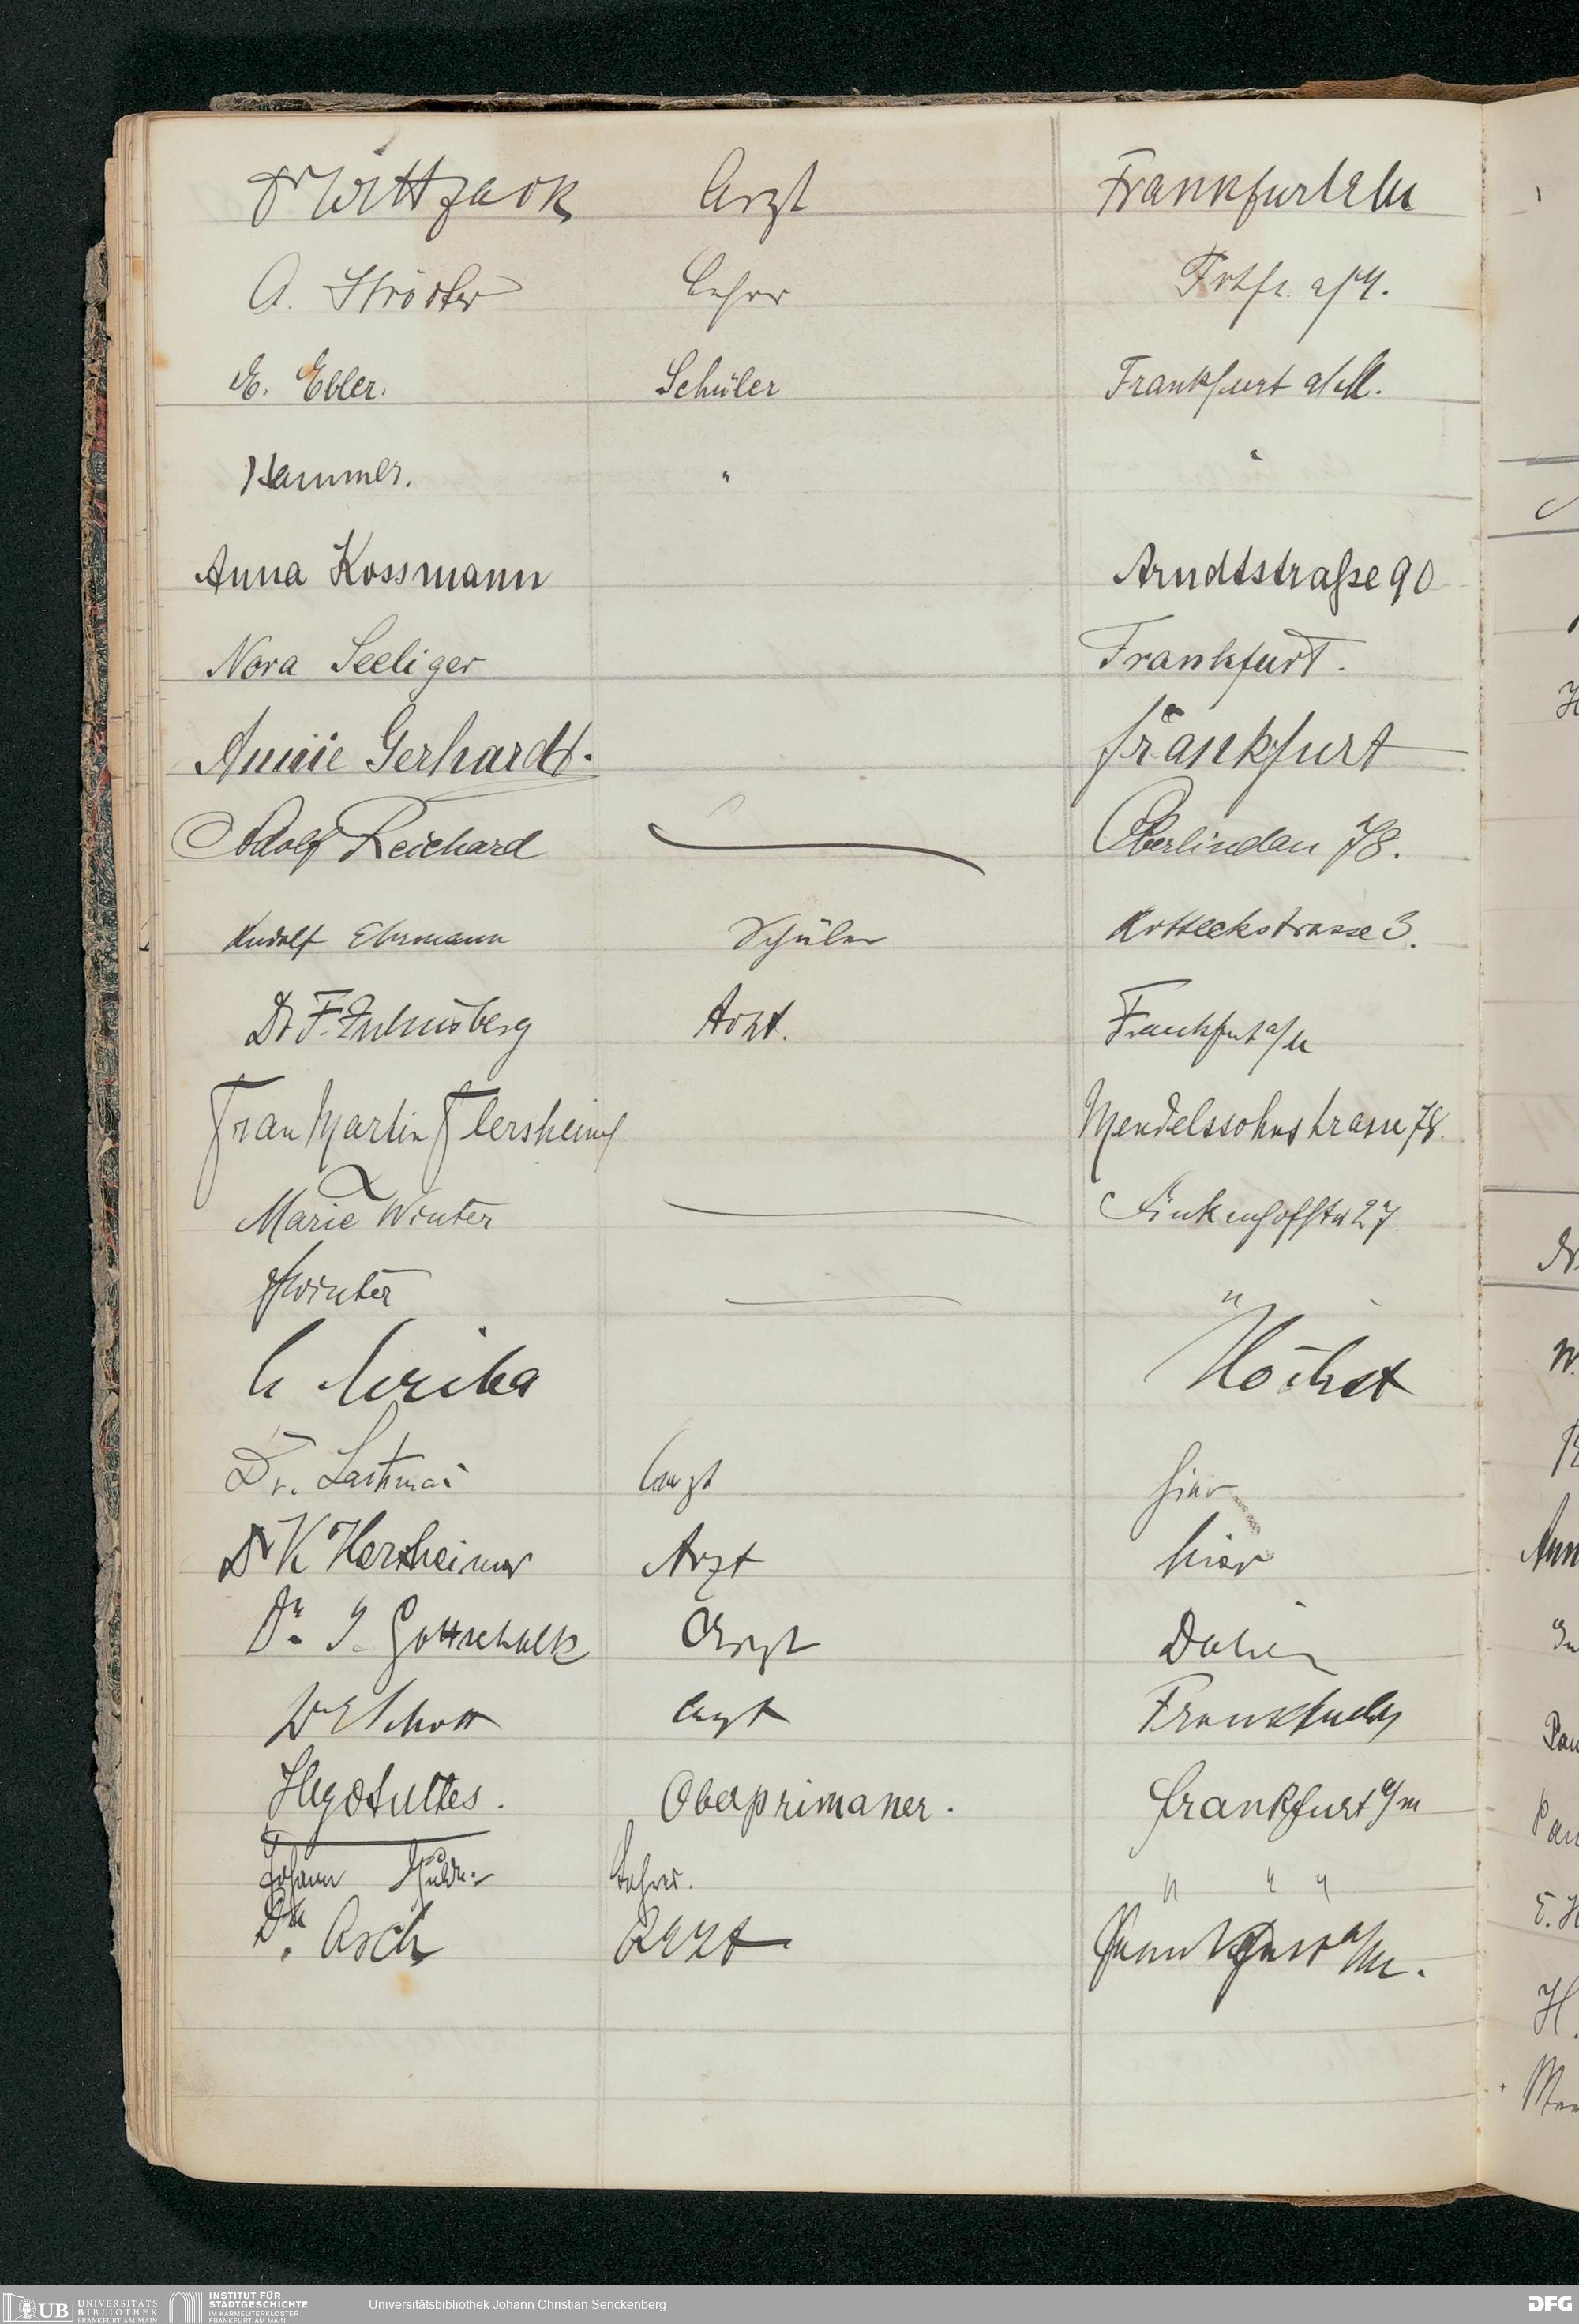 Dr Wittzack Arzt Frankfurt a/M
A. Ströter Lehrer Frkft. a/M.
E. Ebler. Schüler Frankfurt a/M.
Hammer. " "
Anna Kossmann Arndtstraße 90
Nora Seeliger Frankfurt.
Annie Gerhardt. Frankfurt
Adolf Reichard Oberlindau 78.
Rudolf Ehrmann Schüler Rotteckstrasse 3.
Dr F. Arzt. Frankfurt a/M
Frau Martin Flersheim Mendelssohnstrasse 78.
Marie Winter Finkenhofstr 27
Winter "
Höchst
Dr. Arzt hier
Dr K Herxheimer Arzt hier
Dr. J. Gottschalk Arzt Dahier
Dr E Schott Arzt Frankfurt
Hugo Sulles. Oberprimaner. Frankfurt a/m
Johann Lehrer. " " "
Dr. Asch Arzt Frankfurt a/M.
UB UNIVERSITÄTS
BIBLIOTHEK
FRANKFURT AM MAIN
INSTITUT FÜR
STADTGESCHICHTE
IM KARMELITERKLOSTER
FRANKFURT AM MAIN
Universitätsbibliothek Johann Christian Senckenberg
DFG